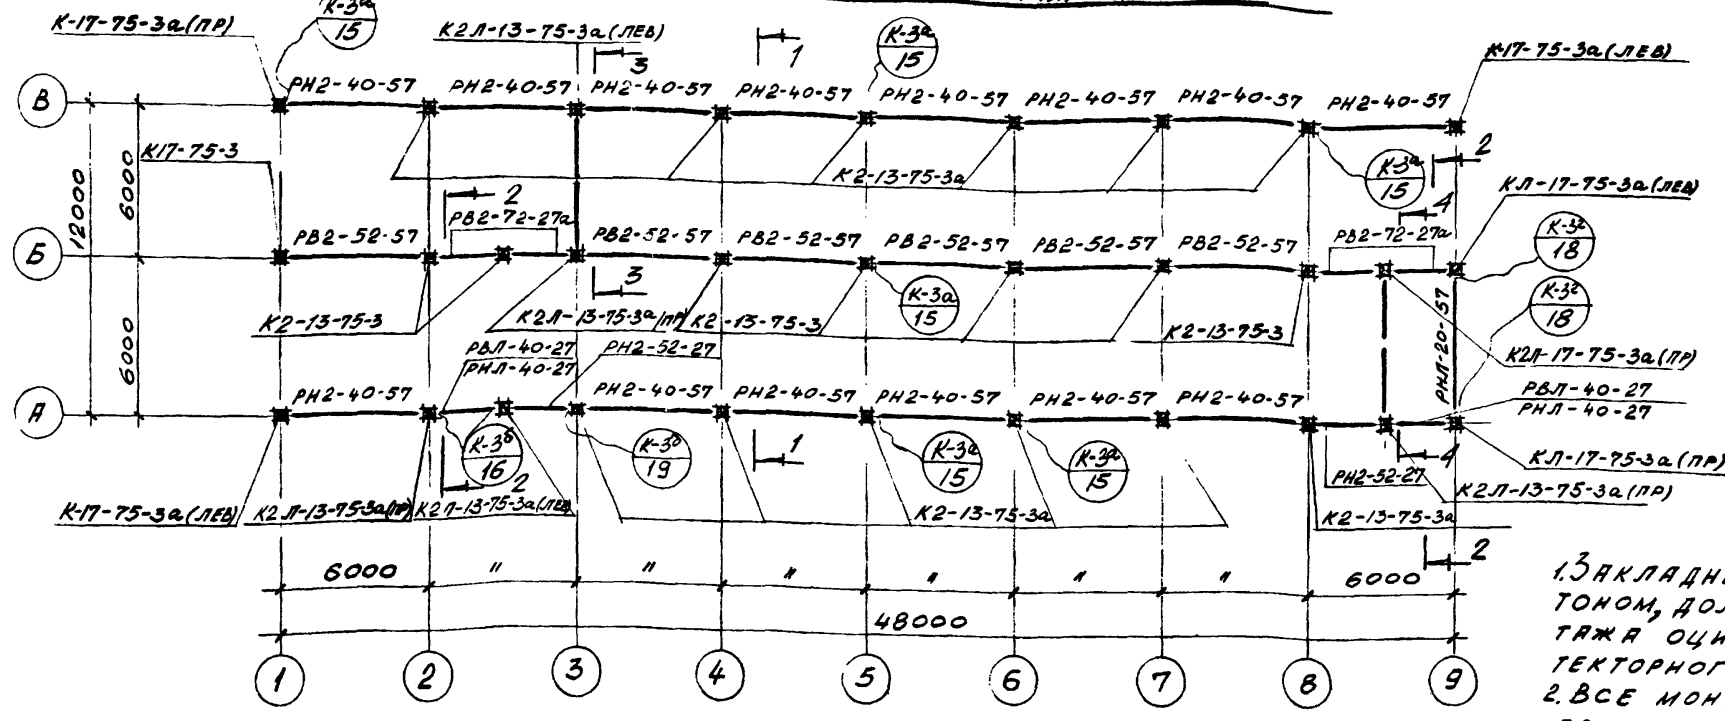 К-17-75-3а(ПР)
К-3а
15
К2Л-13-75-3а(ЛЕВ)
3
1
К-3а
15
К-17-75-3а(ЛЕВ)
В
РН2-40-57 РН2-40-57 РН2-40-57 РН2-40-57 РН2-40-57 РН2-40-57 РН2-40-57 РН2-40-57
К17-75-3
К2-13-75-3а
К-3а
15
2
12000
6000
6000
2
РВ2-72-27а
4
КЛ-17-75-3а(ЛЕВ)
Б
РВ2-52-57 РВ2-52-57 РВ2-52-57 РВ2-52-57 РВ2-52-57 РВ2-52-57
РВ2-72-27а
К-3г
18
3
К-3а
15
К-3г
18
РНЛ-20-57
К2-13-75-3
К2Л-13-75-3а(ПР)
К2-13-75-3
К2-13-75-3
К2Л-17-75-3а(ПР)
РВЛ-40-27
РНЛ-40-27
РН2-52-27
РВЛ-40-27
РНЛ-40-27
А
РН2-40-57 РН2-40-57 РН2-40-57 РН2-40-57 РН2-40-57 РН2-40-57
К-3б
16
К-3д
19
1
К-3а
15
К-3а
15
РН2-52-27
4
КЛ-17-75-3а(ПР)
2
К-17-75-3а(ЛЕВ)
К2Л-13-75-3а(ПР)
К2Л-13-75-3а(ЛЕВ)
К2-13-75-3а
К2Л-13-75-3а(ПР)
К2-13-75-3а
2
6000 " " " " " " 6000
48000
1 2 3 4 5 6 7 8 9
1. ЗАКЛАДН
ТОНОМ, ДОЛ
ТАЖА ОЦИ
ТЕКТОРНОГ
2. ВСЕ МОН